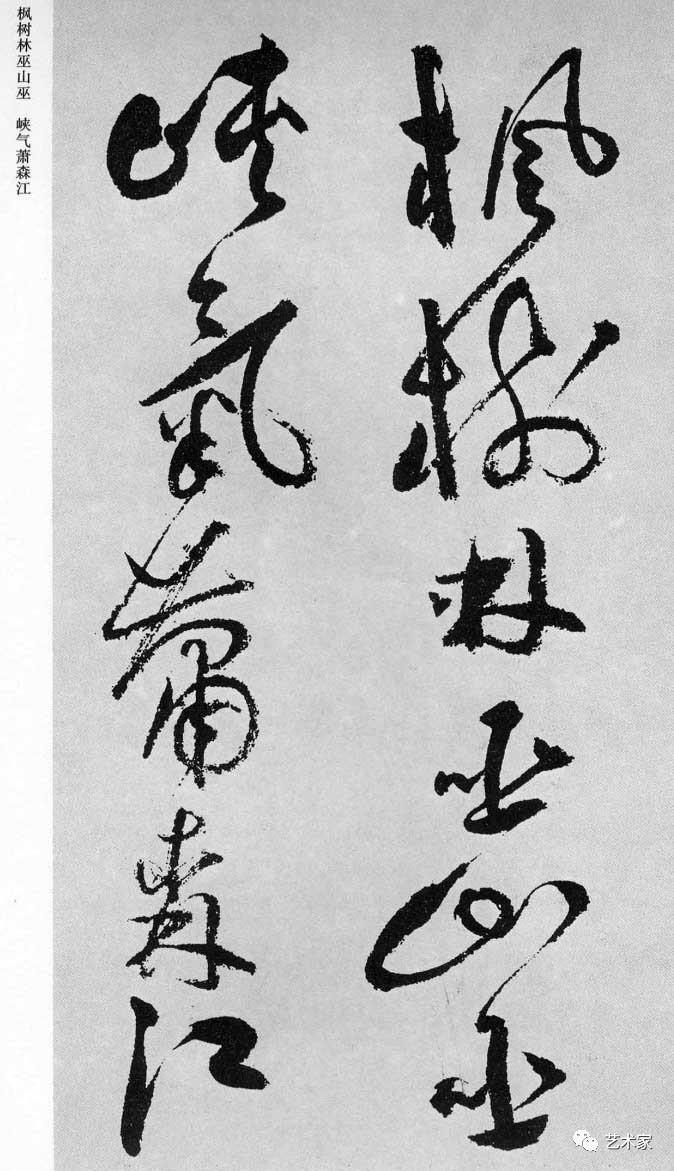 枫树林巫山巫 峡气萧森江
楓樹林巫山巫
峡氣蕭森江
艺术家